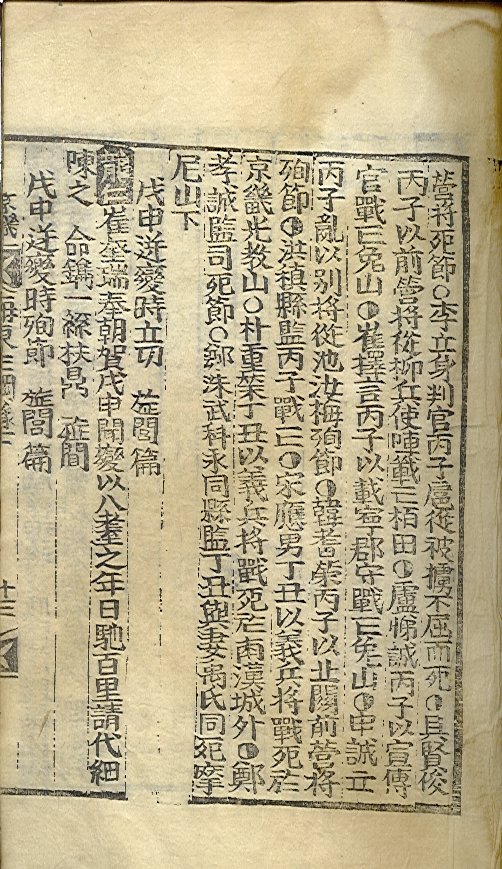 營將死節○李立身判官丙子扈從被擄不屈而死○具賢俊
丙子以前營將從柳兵使琳戰亡栢田○盧悌誠丙子以宣傳
官戰亡免山○崔擇言丙子以載寧郡守戰亡免山○申誠立
丙子亂以別將從池汝梅殉節○韓耆榮丙子以北關前營將
殉節○洪積縣監丙子戰亡○宋應男丁丑以義兵將戰死於
京畿光教山○朴重榮丁丑以義兵將戰死於南漢城外○鄭
孝誠監司死節○鄭洙武科永同縣監丁丑與妻禹氏同死摩
尼山下
戊申逆變時立功 旌閭篇
龍仁崔奎瑞奉朝賀戊申聞變以八耋之年日馳百里請代細
陳之 命鐫一絲扶鼎 旌閭
戊申逆變時殉節 旌閭篇
京畿 海東三綱錄 十三